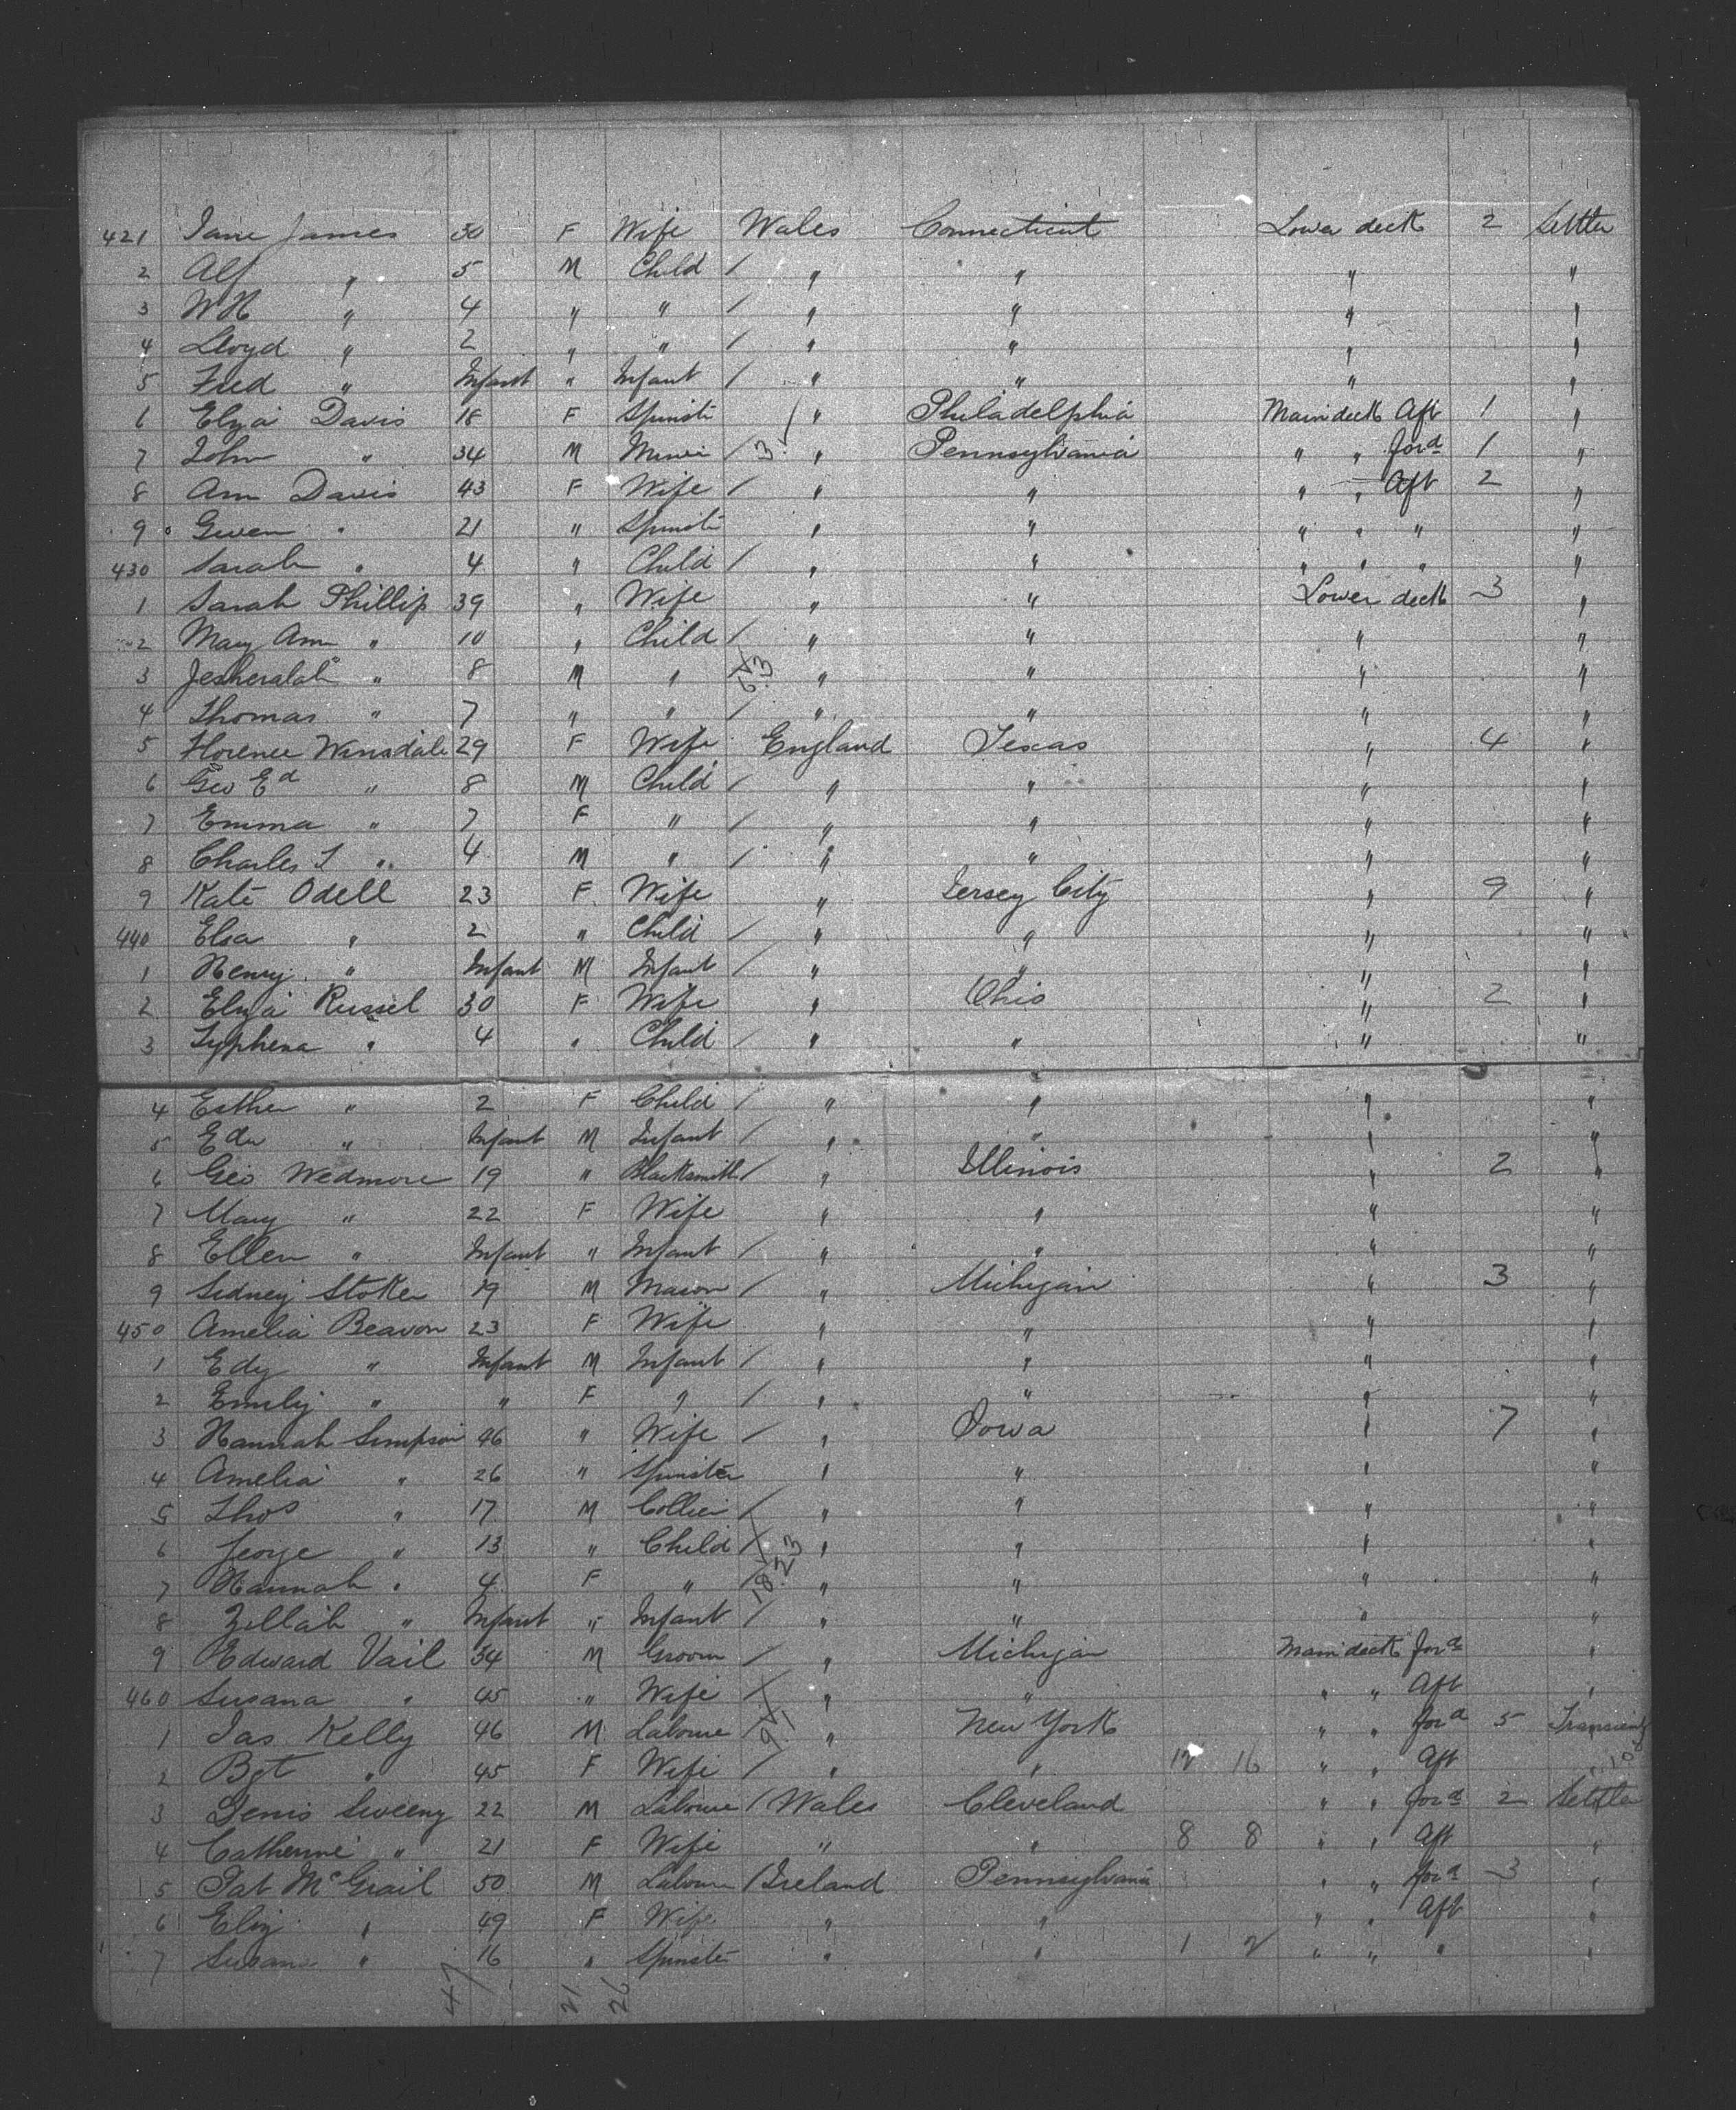 421 Jane James 30 F Wife Wales Connecticut Lower deck 2 Settler
2 Alf " 5 M Child / " " " "
3 WH " 4 " " / " " " "
4 Lloyd " 2 " " / " " " "
5 Fred " Infant " Infant / " " " "
6 Eliza Davis 18 F Spinstr / " Philadelphia Main deck Aft 1 "
7 John " 34 M Miner / 3 " Pennsylvania " " ford 1 "
8 Ann Davis 43 F Wife / " " " " Aft 2 "
9 Gwen " 21 " Spinstr " " " " " "
430 Sarah " 4 " Child / " " " " " "
1 Sarah Phillip 39 " Wife " " Lower deck 3 "
2 Mary Ann " 10 " Child / " " " "
3 " 8 M " " " " "
4 Thomas " 7 " " / " " " "
5 Florence Winsdale 29 F Wife England Texas " 4 "
6 Geo Ed " 8 M Child / " " " "
7 Emma " 7 F " / " " " "
8 Charles T " 4 M " / " " " "
9 Kate Odell 23 F Wife " Jersey City " 9 "
440 Elsa " 2 " Child / " " " "
1 Henry " Infant M Infant / " " " "
2 Eliza Russel 30 F Wife " Ohio " 2 "
3 Typhena " 4 " Child / " " " "
4 Esther " 2 F Child / " " " "
5 Edw " Infant M Infant / " " " "
6 Geo Wedmore 19 " Blacksmith / " Illinois " 2 "
7 Mary " 22 F Wife " " " "
8 Ellen " Infant " Infant / " " " "
9 Sidney Stoker 19 M Mason / " Michigan " 3 "
450 Amelia Beavon 23 F Wife " " " "
1 Edy " Infant M Infant / " " " "
2 Emily " " F " / " " " "
3 Hannah Simpson 46 " Wife / " Iowa " 7 "
4 Amelia " 26 " Spinster " " " "
5 Thos " 17 M Collier / " " " "
6 George " 13 " Child / " " " "
7 Hannah " 4 F " / 18 23 " " " "
8 Zillah " Infant " Infant / " " " "
9 Edward Vail 34 M Groom / " Michigan Main deck ford "
460 Susana " 45 " Wife / " " " " Aft "
1 Jas Kelly 46 M Laboure / 9 1 " New York " " ford 5 Transient
2 Bgt " 45 F Wife / " " 12 16 " " Aft "
3 Denis Sweeny 22 M Laboure / Wales Cleveland " " ford 2 Settler
4 Catherine " 21 F Wife " " 8 8 " " Aft "
5 Pat McGrail 50 M Laboure / Ireland Pennsylvania " " ford 3 "
6 Eliz " 49 F Wife " " " " Aft "
7 Susana " 16 " Spinster " " 1 2 " " " "
47 21 26